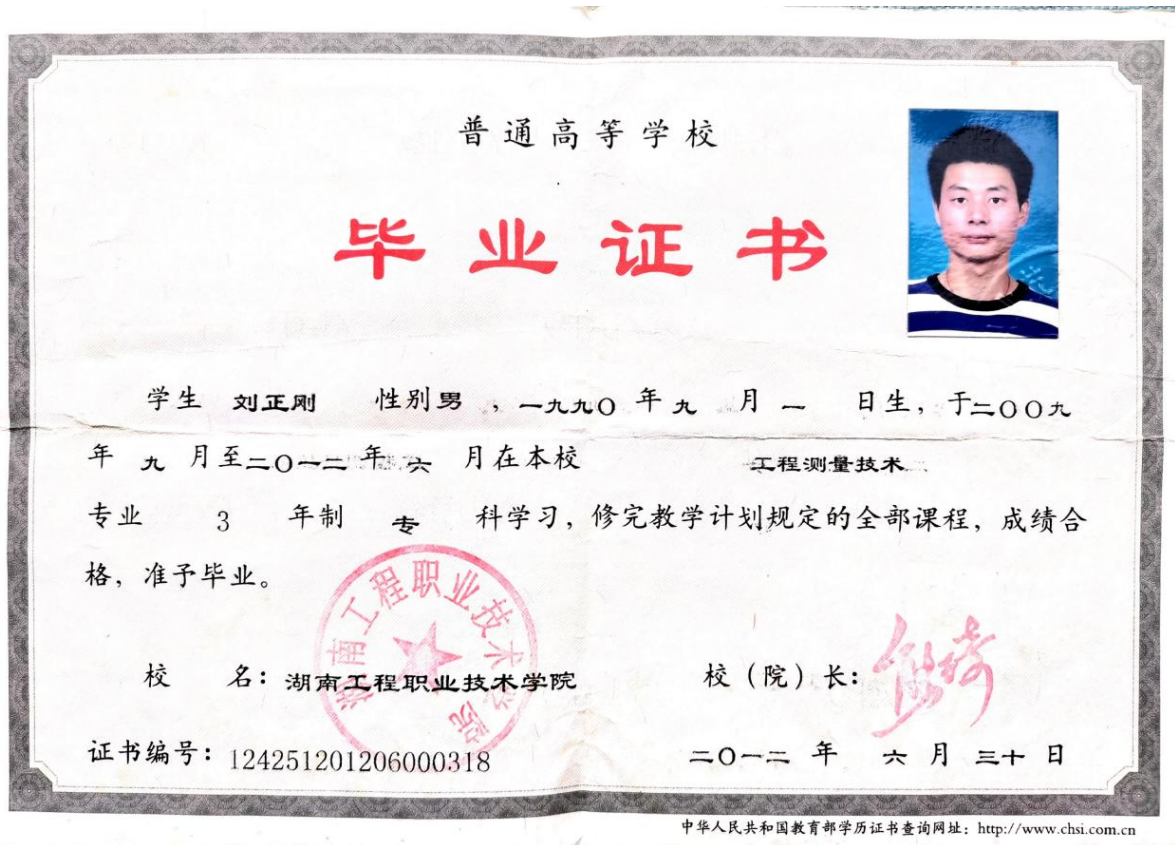 普通高等学校
毕业证书
学生 刘正刚 性别男，一九九〇年九月一日生，于二〇〇九
年九月至二〇一二年六月在本校 工程测量技术
专业 3 年制 专 科学习，修完教学计划规定的全部课程，成绩合
格，准予毕业。
湖南工程职业技术学院
校 名：湖南工程职业技术学院 校（院）长：
证书编号：124251201206000318 二〇一二年六月三十日
中华人民共和国教育部学历证书查询网址：http://www.chsi.com.cn